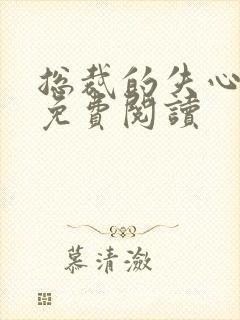 总裁的失心
免費閱讀
慕清潋